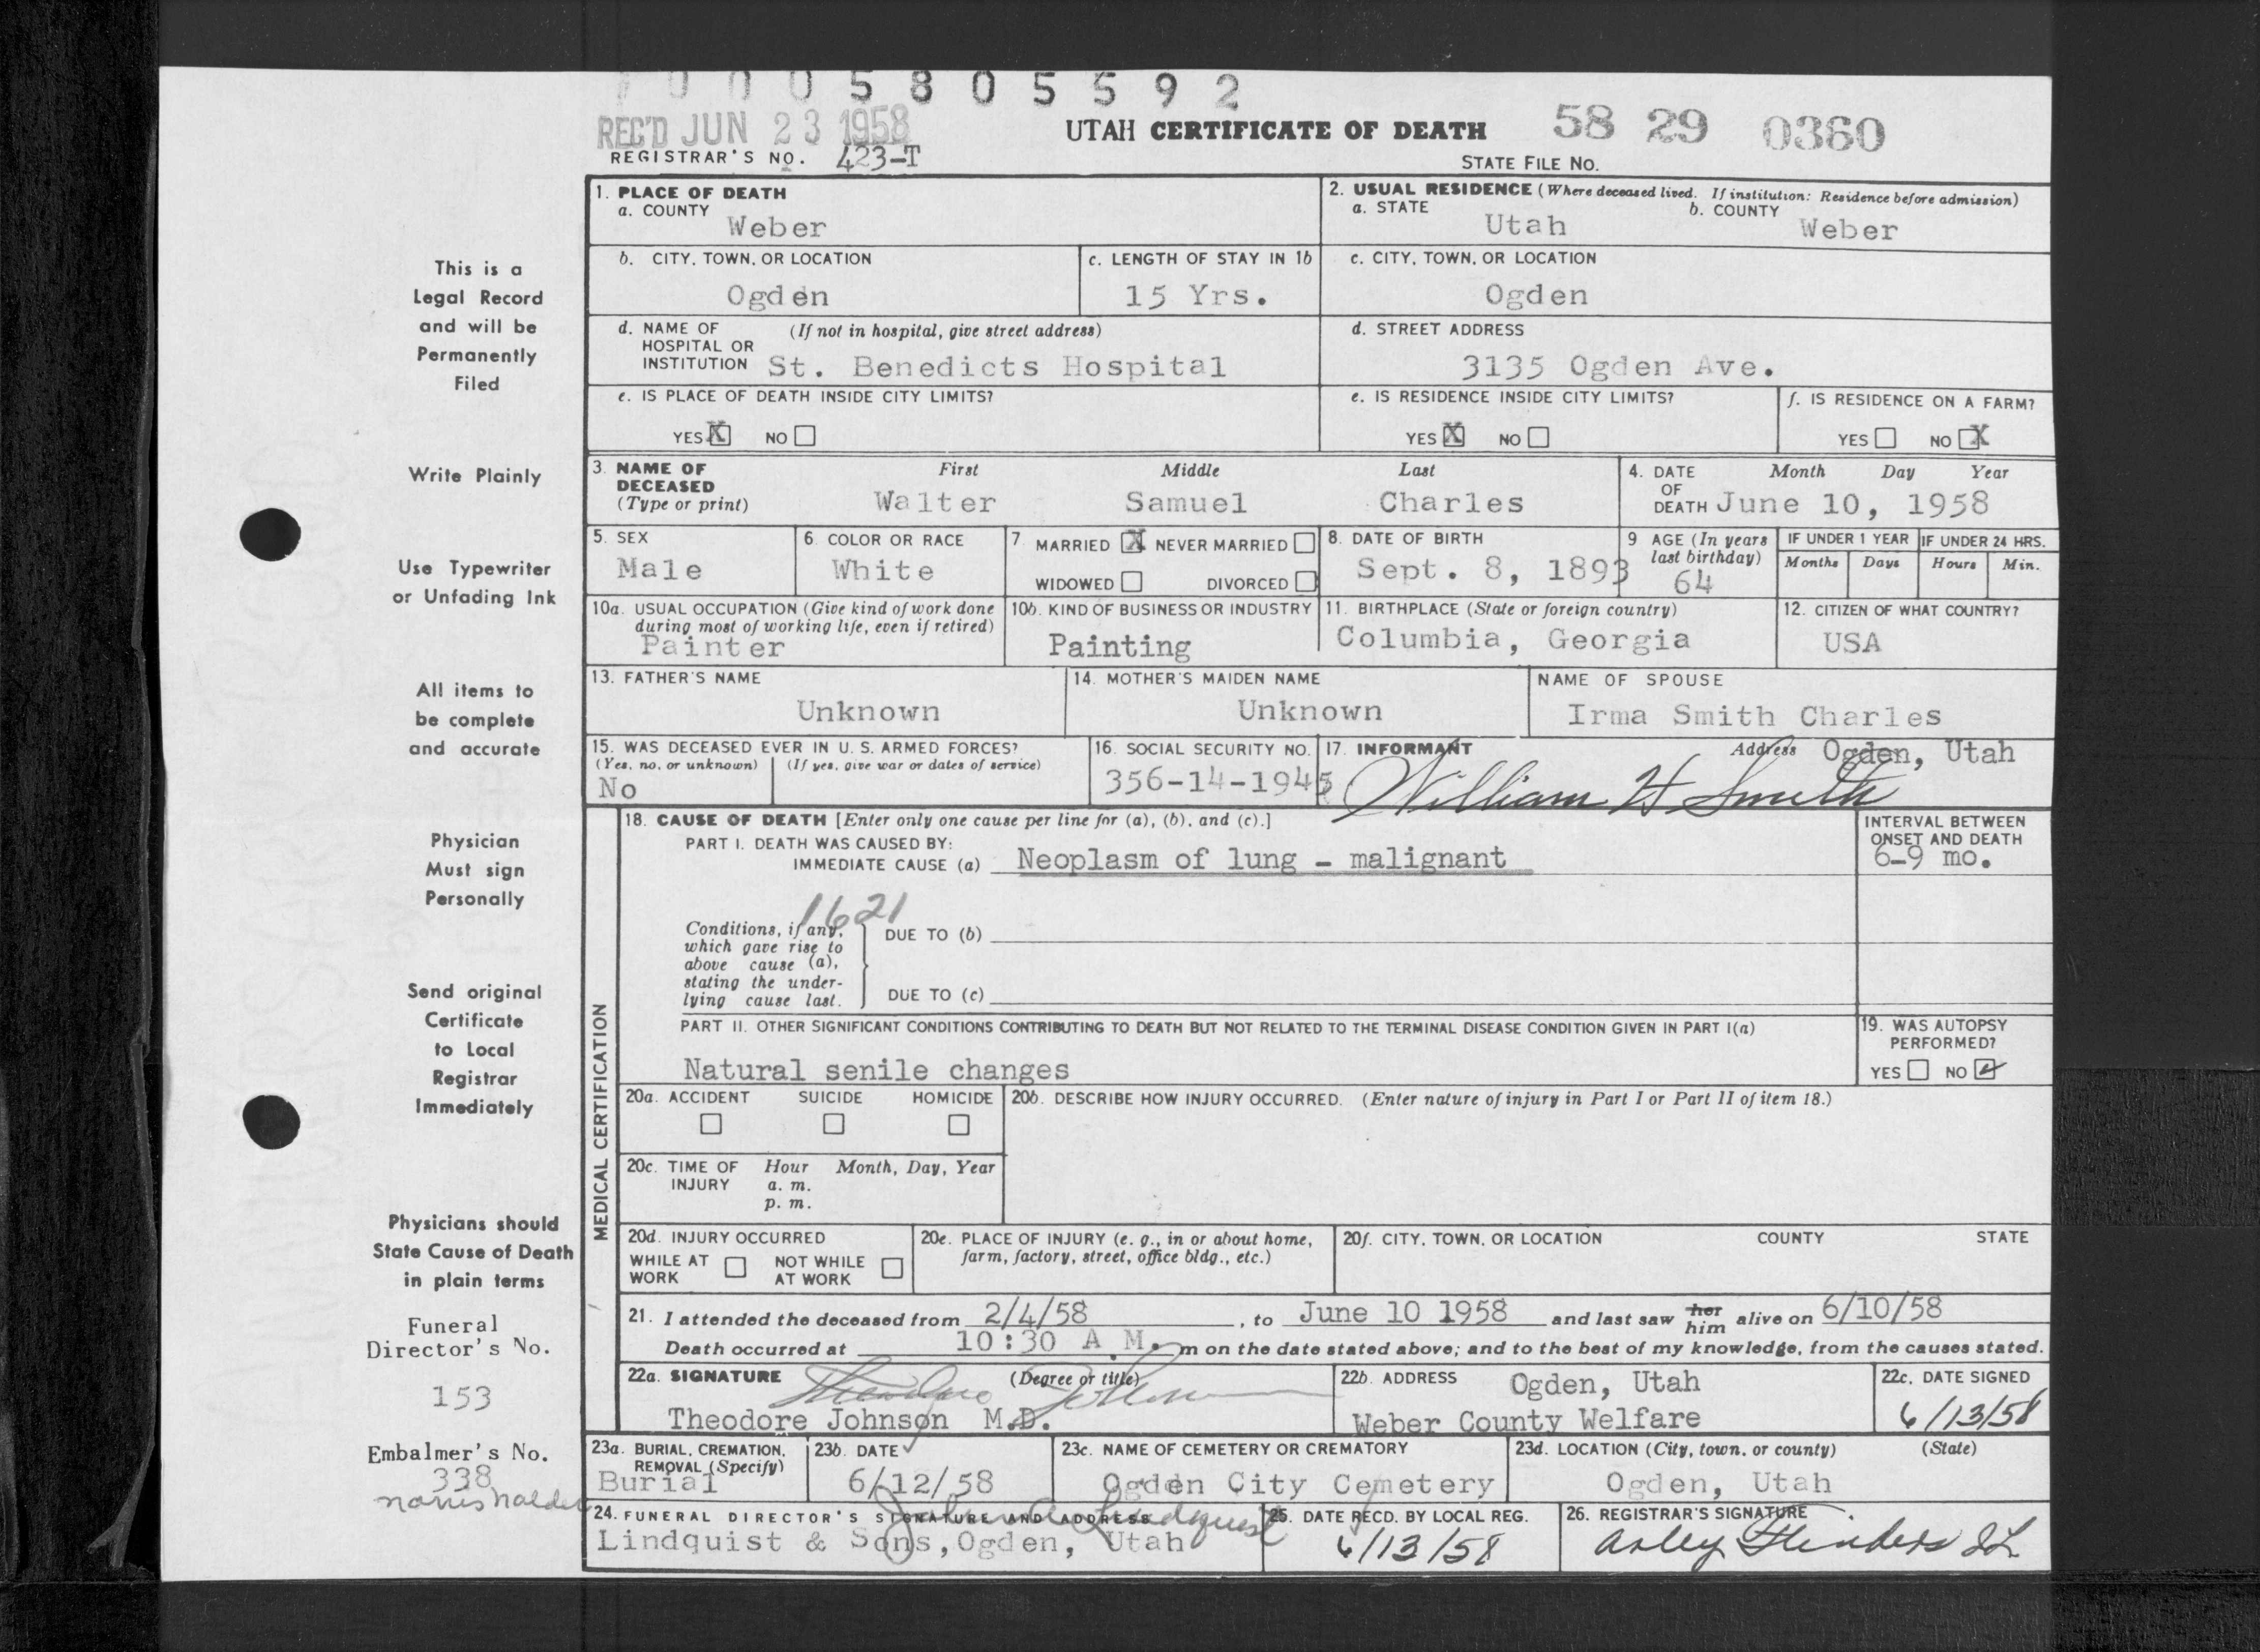 0 0 0 5 8 0 5 5 9 2
REC'D JUN 23 1958
UTAH CERTIFICATE OF DEATH 58 29 0360
REGISTRAR'S NO. 423-T
STATE FILE NO.
1. PLACE OF DEATH
a. COUNTY Weber
2. USUAL RESIDENCE (Where deceased lived. If institution: Residence before admission)
a. STATE Utah b. COUNTY Weber
b. CITY, TOWN, OR LOCATION Ogden
c. LENGTH OF STAY IN 1b 15 Yrs.
c. CITY, TOWN, OR LOCATION Ogden
d. NAME OF HOSPITAL OR INSTITUTION (If not in hospital, give street address) St. Benedicts Hospital
d. STREET ADDRESS 3135 Ogden Ave.
e. IS PLACE OF DEATH INSIDE CITY LIMITS?
YES X NO
e. IS RESIDENCE INSIDE CITY LIMITS?
YES X NO
f. IS RESIDENCE ON A FARM?
YES NO X
3. NAME OF DECEASED (Type or print)
First Middle Last
Walter Samuel Charles
4. DATE OF DEATH Month Day Year
June 10, 1958
5. SEX Male
6. COLOR OR RACE White
7 MARRIED X NEVER MARRIED
WIDOWED DIVORCED
8. DATE OF BIRTH Sept. 8, 1893
9 AGE (In years last birthday) 64
IF UNDER 1 YEAR Months Days
IF UNDER 24 HRS. Hours Min.
10a. USUAL OCCUPATION (Give kind of work done during most of working life, even if retired) Painter
10b. KIND OF BUSINESS OR INDUSTRY Painting
11. BIRTHPLACE (State or foreign country) Columbia, Georgia
12. CITIZEN OF WHAT COUNTRY? USA
13. FATHER'S NAME Unknown
14. MOTHER'S MAIDEN NAME Unknown
NAME OF SPOUSE Irma Smith Charles
15. WAS DECEASED EVER IN U. S. ARMED FORCES?
(Yes, no, or unknown) (If yes, give war or dates of service)
No
16. SOCIAL SECURITY NO. 356-14-1945
17. INFORMANT Address Ogden, Utah
William H Smith
MEDICAL CERTIFICATION
18. CAUSE OF DEATH [Enter only one cause per line for (a), (b), and (c).]
PART I. DEATH WAS CAUSED BY:
IMMEDIATE CAUSE (a) Neoplasm of lung - malignant
INTERVAL BETWEEN ONSET AND DEATH
6-9 mo.
1621
Conditions, if any, which gave rise to above cause (a), stating the under-lying cause last.
DUE TO (b)
DUE TO (c)
PART II. OTHER SIGNIFICANT CONDITIONS CONTRIBUTING TO DEATH BUT NOT RELATED TO THE TERMINAL DISEASE CONDITION GIVEN IN PART I(a)
Natural senile changes
19. WAS AUTOPSY PERFORMED?
YES NO
20a. ACCIDENT SUICIDE HOMICIDE
20b. DESCRIBE HOW INJURY OCCURRED. (Enter nature of injury in Part I or Part II of item 18.)
20c. TIME OF INJURY Hour Month, Day, Year
a. m.
p. m.
20d. INJURY OCCURRED
WHILE AT WORK NOT WHILE AT WORK
20e. PLACE OF INJURY (e. g., in or about home, farm, factory, street, office bldg., etc.)
20f. CITY, TOWN, OR LOCATION COUNTY STATE
21. I attended the deceased from 2/4/58, to June 10 1958 and last saw her him alive on 6/10/58
Death occurred at 10:30 A M. m on the date stated above; and to the best of my knowledge, from the causes stated.
22a. SIGNATURE (Degree or title)
Theodore Johnson M.D.
22b. ADDRESS Ogden, Utah
Weber County Welfare
22c. DATE SIGNED
6/13/58
23a. BURIAL, CREMATION, REMOVAL (Specify) Burial
23b. DATE 6/12/58
23c. NAME OF CEMETERY OR CREMATORY Ogden City Cemetery
23d. LOCATION (City, town, or county) (State)
Ogden, Utah
24. FUNERAL DIRECTOR'S SIGNATURE AND ADDRESS
Lindquist & Sons, Ogden, Utah
25. DATE RECD. BY LOCAL REG.
6/13/58
26. REGISTRAR'S SIGNATURE
This is a
Legal Record
and will be
Permanently
Filed
Write Plainly
Use Typewriter
or Unfading Ink
All items to
be complete
and accurate
Physician
Must sign
Personally
Send original
Certificate
to Local
Registrar
Immediately
Physicians should
State Cause of Death
in plain terms
Funeral
Director's No.
153
Embalmer's No.
338